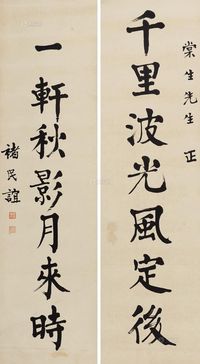 棠生先生 正
千里波光風定後
一軒秋影月來時
褚民誼